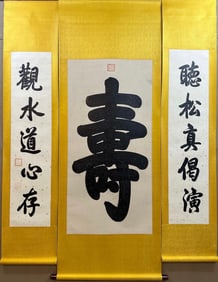 聽松真偈演
壽
觀水道心存